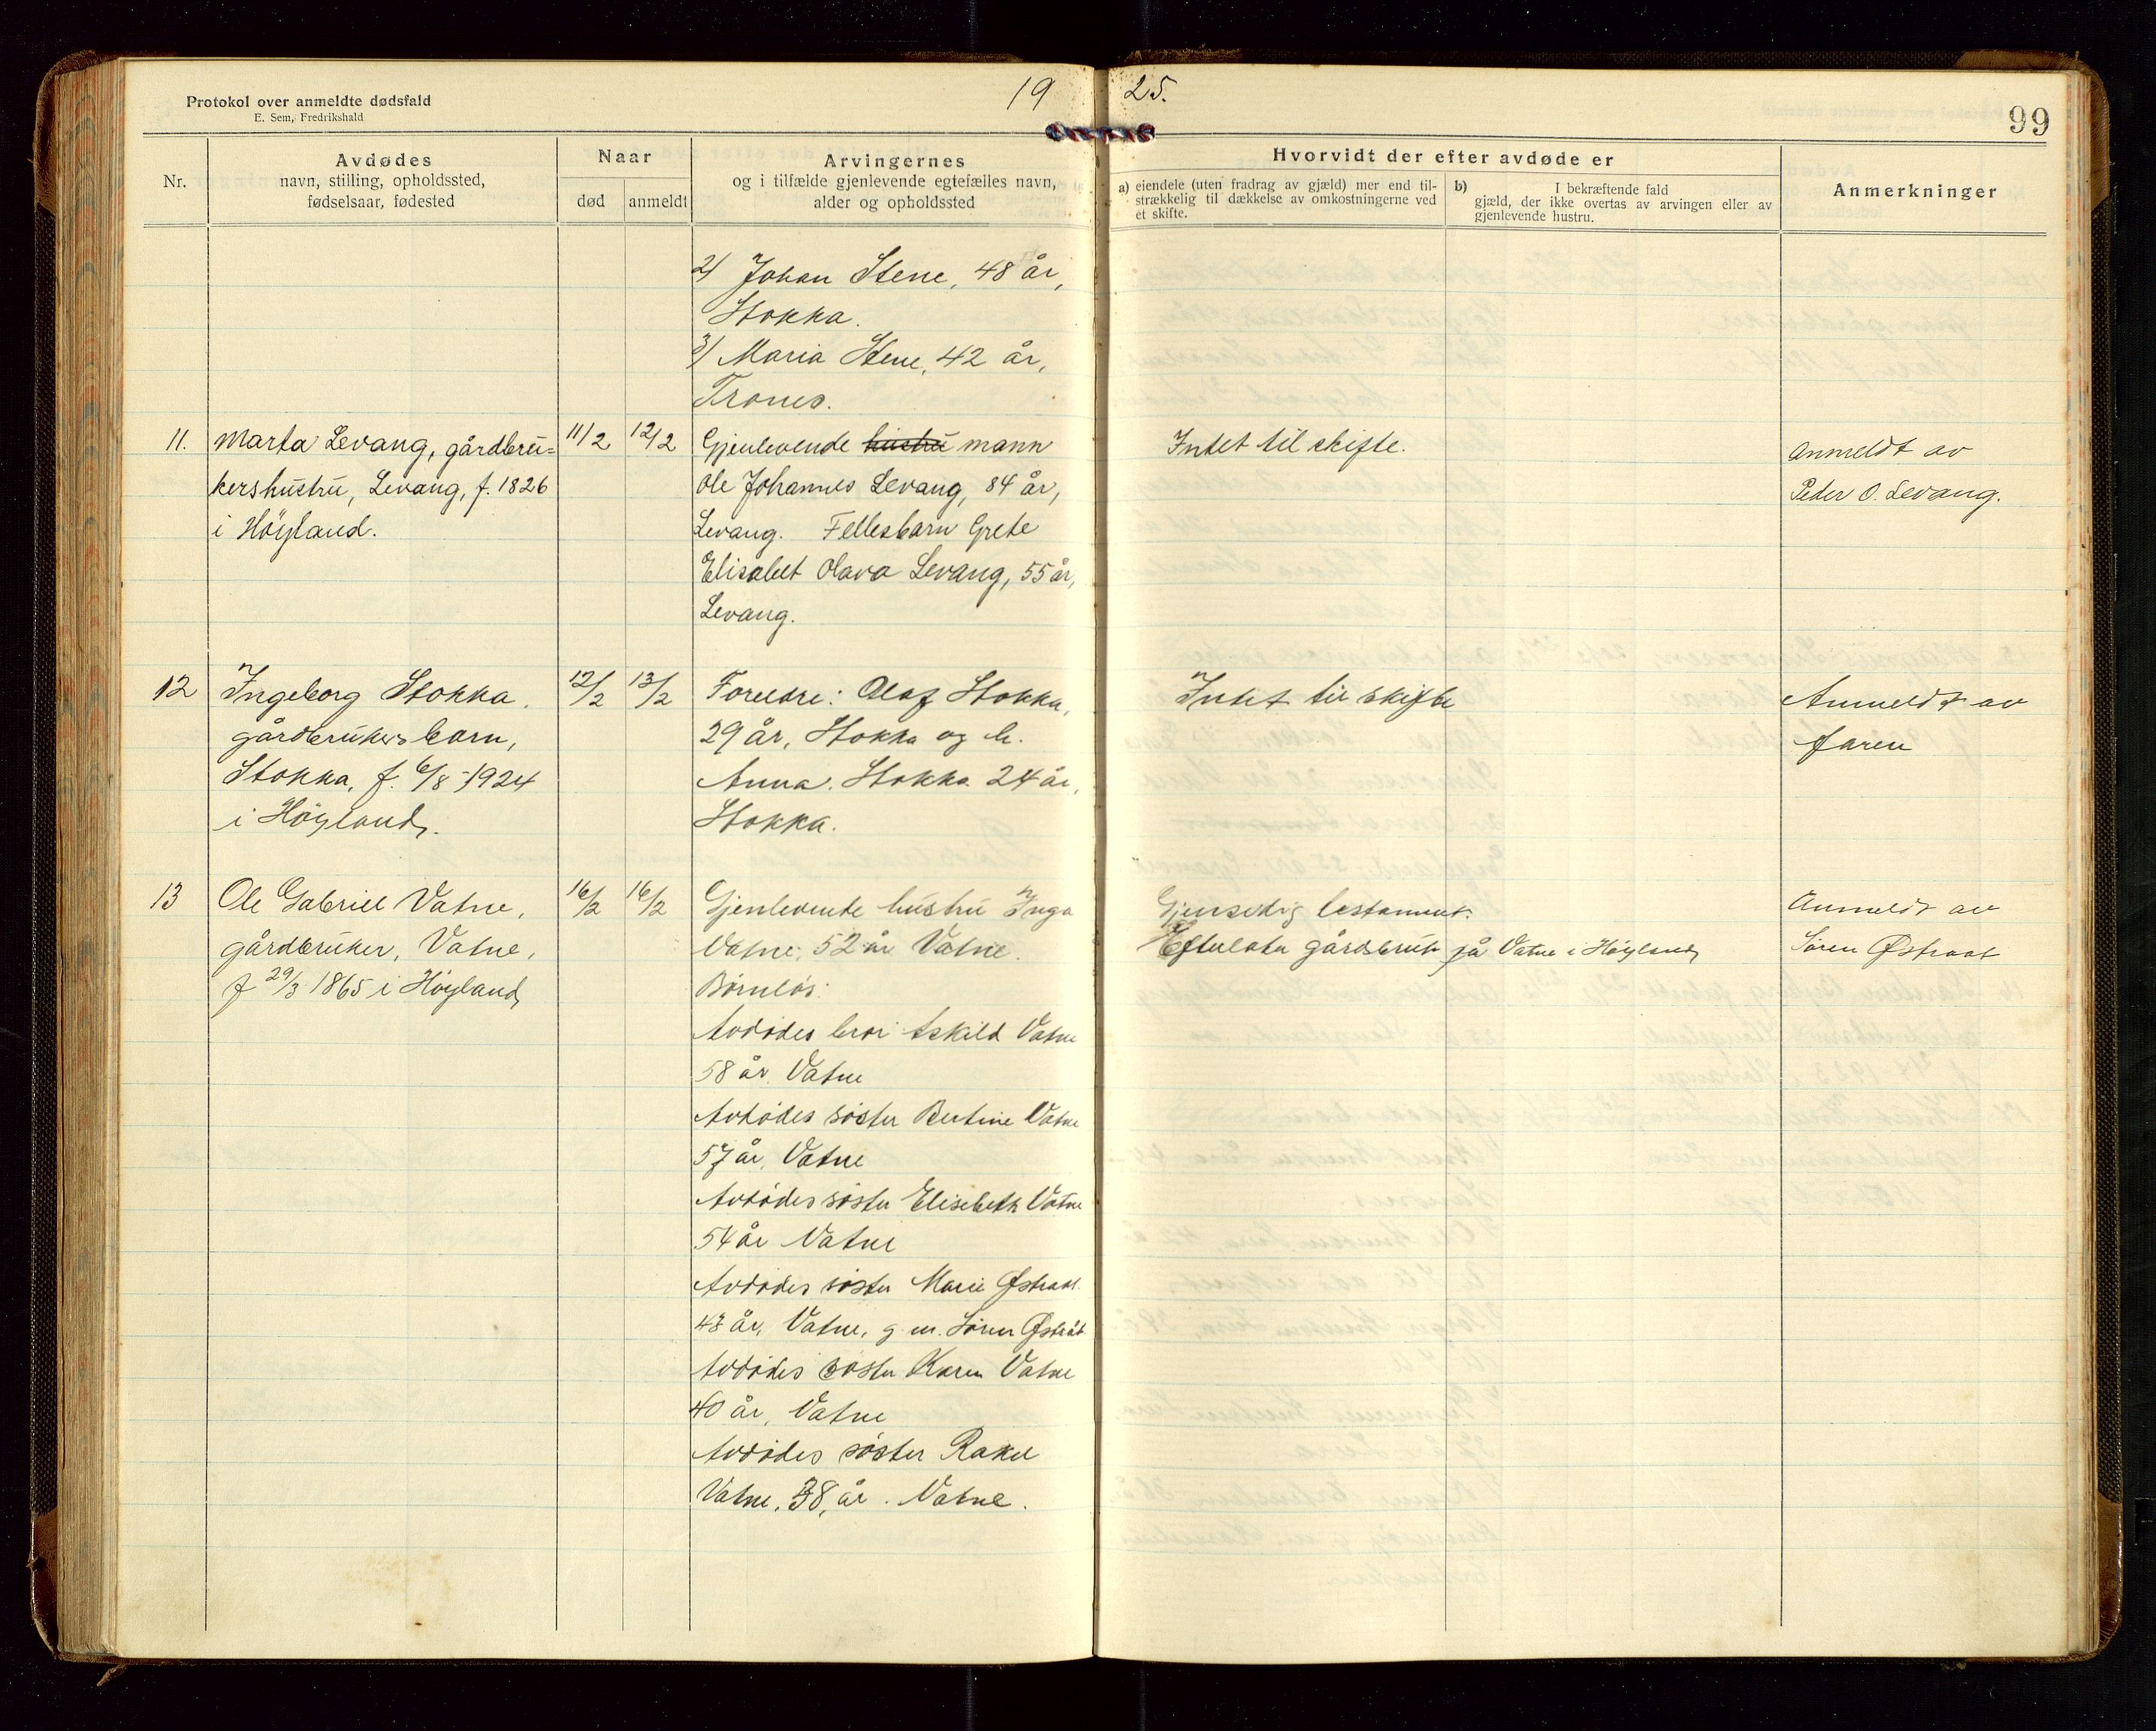 Protokol over anmeldte dødsfald
E. Sem, Fredrikshald
19 25.
99
Nr.
Avdødes
navn, stilling, opholdssted,
fødselsaar, fødested
Naar
død
anmeldt
Arvingernes
og i tilfælde gjenlevende egtefælles navn,
alder og opholdssted
Hvorvidt der efter avdøde er
a) eiendele (uten fradrag av gjæld) mer end til-
strækkelig til dækkelse av omkostningerne ved
et skifte.
b) I bekræftende fald
gjæld, der ikke overtas av arvingen eller av
gjenlevende hustru.
Anmerkninger
2) Johan Stene, 48 år,
Stokka.
3) Maria Stene, 42 år,
Trones.
11.
Marta Levang, gårdbru=
kershustru, Levang, f. 1826
i Höyland.
11/2
12/2
Gjenlevende hustru mann
Ole Johannes Levang, 84 år,
Levang. Fellesbarn Grete
Elisabet Olava Levang, 55 år,
Levang.
Intet til skifte.
Anmeldt av
Peder O. Levang.
12
Ingeborg Stokka,
gårdbrukers barn,
Stokka, f. 6/8-1924
i Höyland.
12/2
13/2
Foreldre: Olaf Stokka,
29 år, Stokka og h.
Anna Stokka 24 år,
Stokka.
Intet til skifte
Anmeldt av
faren
13
Ole Gabriel Vatne,
gårdbruker, Vatne,
f 29/3 1865 i Höyland
16/2
16/2
Gjenlevende hustru Inga
Vatne, 52 år Vatne.
Barnlös:
Avdödes bror Askild Vatne
58 år, Vatne
Avdödes söster Bertine Vatne
57 år, Vatne
Avdödes söster Elisabeth Vatne
54 år Vatne
Avdödes söster Marie Østraat
43 år, Vatne, g m. Sören Østråt
Avdödes söster Karen Vatne
40 år, Vatne
Avdödes söster Rakel
Vatne, 38, år. Vatne.
Gjensidig testament.
Efterlater gårdsbruk på Vatne i Höyland
Anmeldt av
Sören Østraat